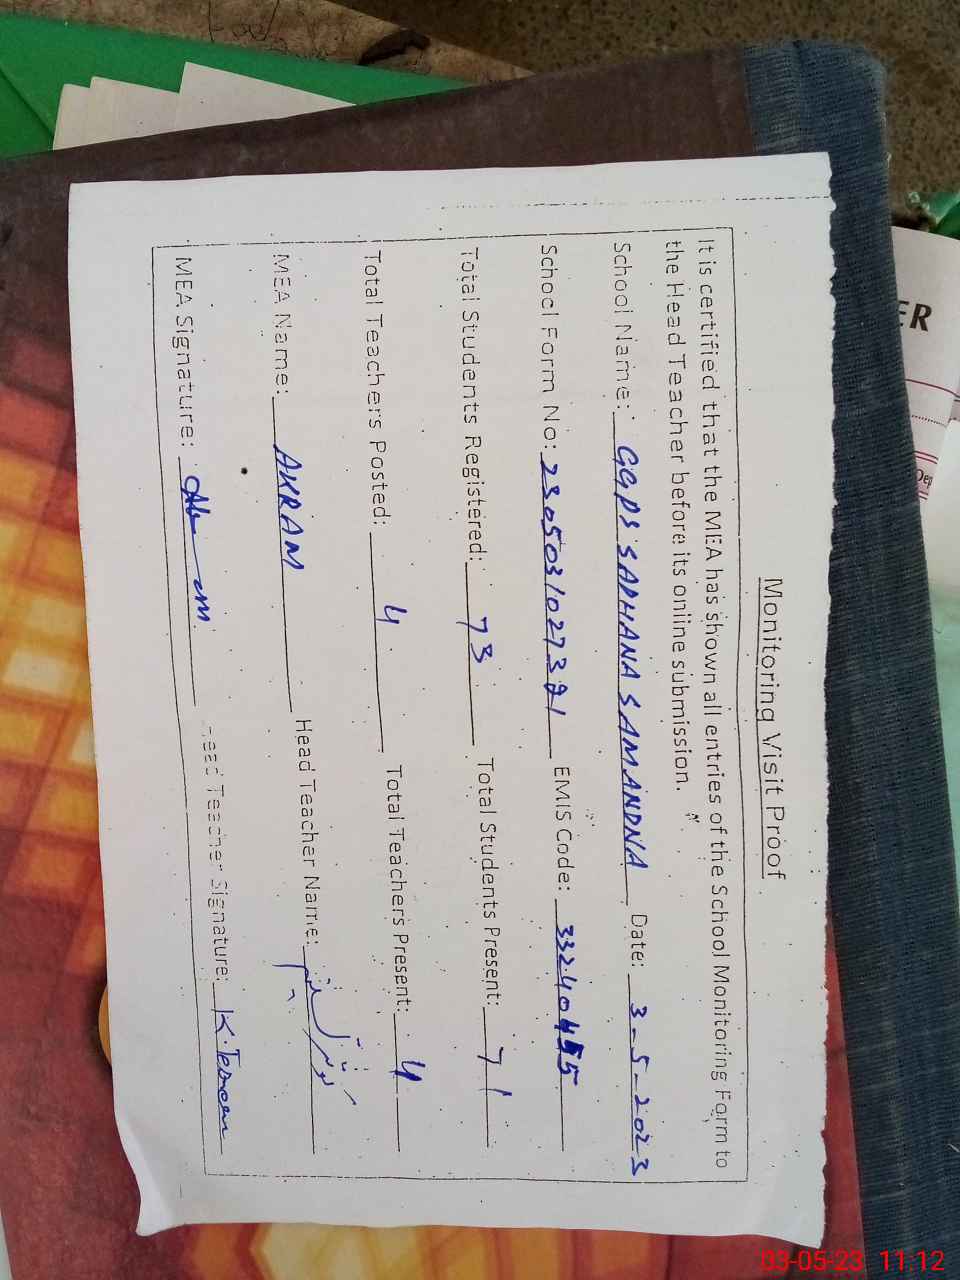 Monitoring Visit Proof
It is certified that the MEA has shown all entries of the School Monitoring Form to
the Head Teacher before its online submission.
School Name: GGPS SADHANA SAMANDNA Date: 3-5-2023
School Form No: EMIS Code: 33240455
Total Students Registered: 73 Total Students Present: 71
Total Teachers Posted: 4 Total Teachers Present: 4
MEA Name: AKRAM Head Teacher Name:
MEA Signature: Head Teacher Signature:
ER
Dep
03-05-23 11:12